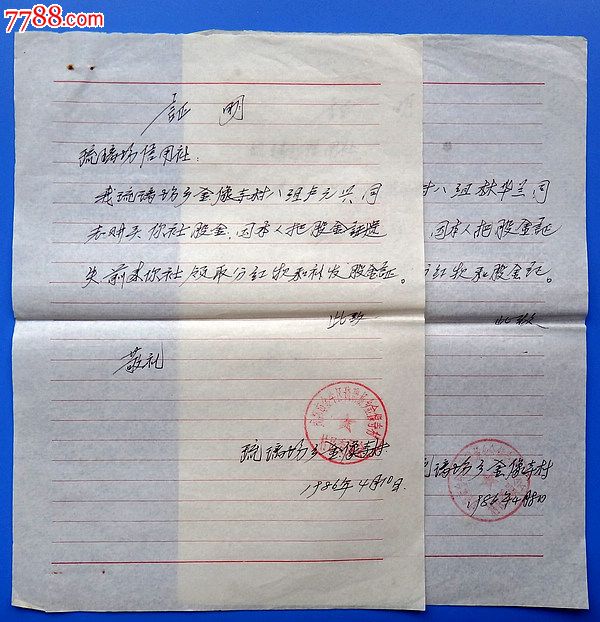 7788.com
证明
琉璃场信用社：
我琉璃场乡金像寺村八组卢元兴同
志购买你社股金，因本人把股金证遗
失，前来你社领取分红款和补发股金证。
此致
敬礼
琉璃场乡金像寺村
1986年4月10日
村八组林华兰同
因本人把股金证
分红款和股金证。
此致
琉璃场乡金像寺村
1986年4月